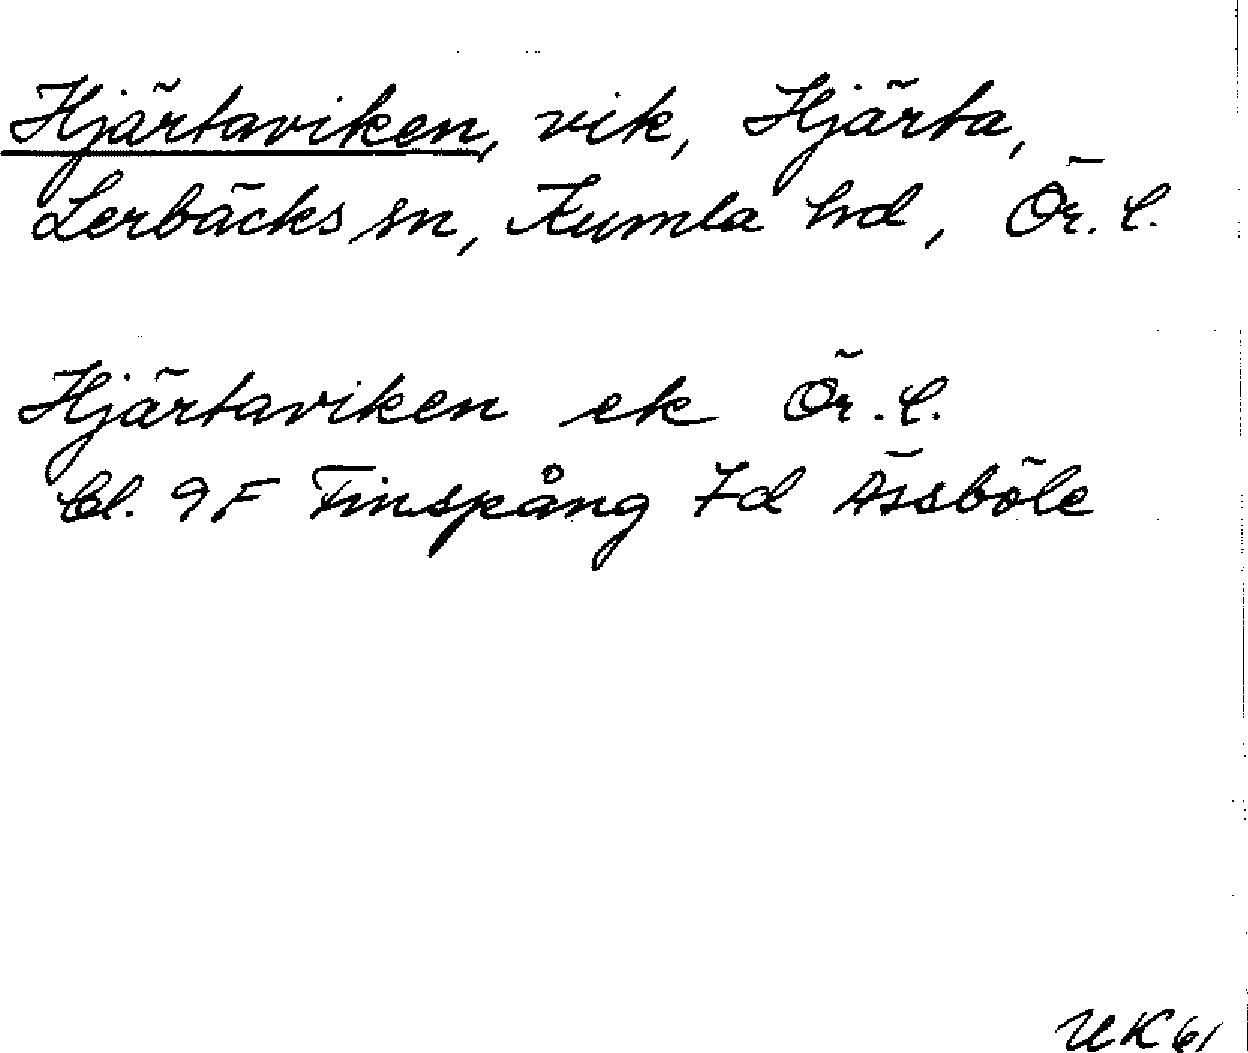 Hjärtaviken, vik, Hjärta,
Lerbäcks sn, Kumla hd, Ör. l.
Hjärtaviken ek Ör. l.
bl. 9F Finspång 7d Åssböle
UK 61